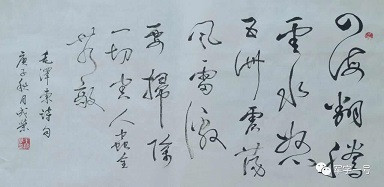 四海翻腾
云水怒
五洲震荡
风雷激
要扫除
一切害人虫全
无敌
毛泽东诗句
庚子秋月